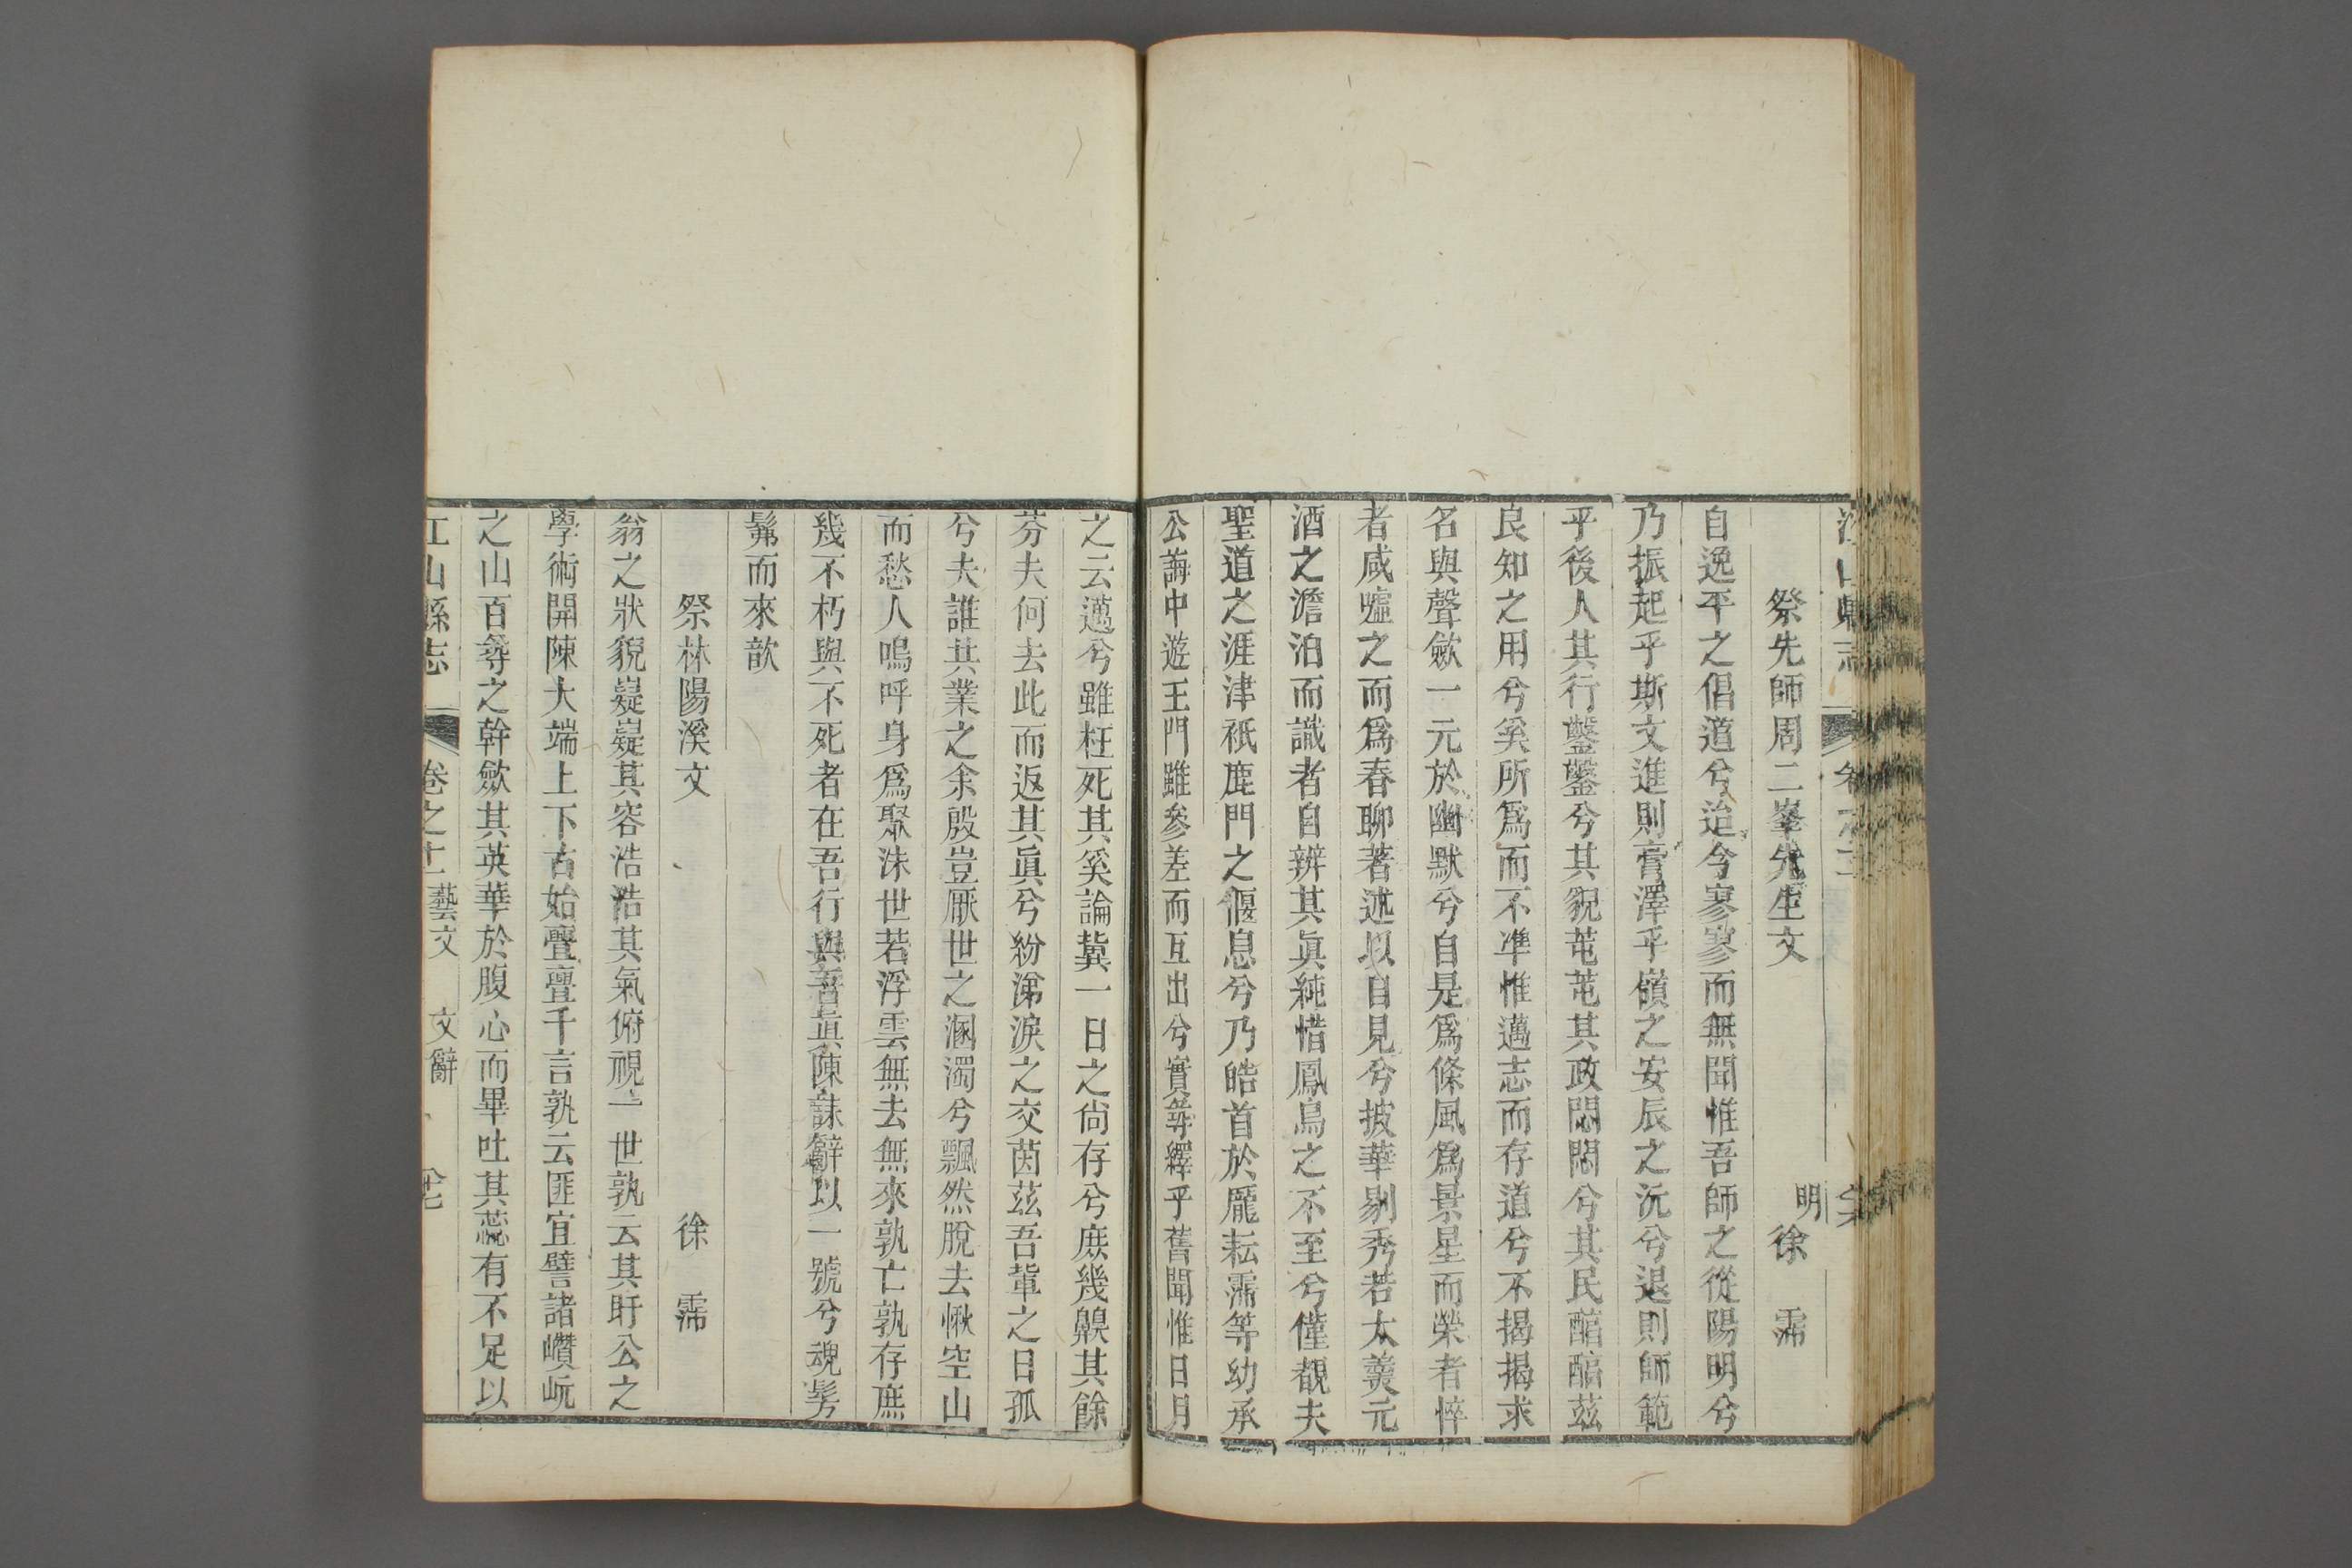 江山縣志 卷之十一
祭先師周二峯先生文 明 徐霈
自逸平之倡道兮迨今寥寥而無聞惟吾師之從陽明兮
乃振起乎斯文進則膏澤乎嶺之安辰之沅兮退則師範
乎後人其行鑿鑿兮其貌芚芚其政悶悶兮其民醕醕茲
良知之用兮奚所爲而不準惟邁志而存道兮不揭揭求
名與聲歛一元於幽默兮自是爲條風爲景星而榮者悴
者咸噓之而爲春聊著述以自見兮披華剔秀若太羹元
酒之澹泊而識者自辨其眞純惜鳳鳥之不至兮僅覩夫
聖道之涯津祇鹿門之偃息兮乃皓首於龐耘霈等幼承
公誨中遊王門雖參差而互出兮實尋繹乎舊聞惟日月
之云邁兮雖枉死其奚論冀一日之尙存兮庶幾齅其餘
芬夫何去此而返其眞兮紛涕淚之交茵茲吾輩之日孤
兮夫誰其業之余殷豈厭世之溷濁兮飄然脫去愀空山
而愁人嗚呼身爲聚沫世若浮雲無去無來孰亡孰存庶
幾不朽與不死者在吾行與吾眞陳誄辭以一號兮魂髣
髴而來歆
祭林陽溪文 徐霈
翁之狀貌嶷嶷其容浩浩其氣俯視一世孰云其盱公之
學術開陳大端上下古始亹亹千言孰云匪宜譬諸巑岏
之山百尋之幹歛其英華於腹心而畢吐其蕊有不足以
江山縣志 卷之十一 藝文 文辭